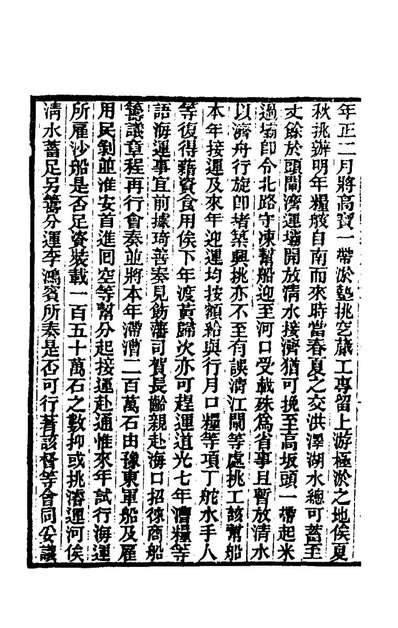 年正二月將高寶一帶淤墊挑空歲工專留上游極淤之地俟夏
秋挑辦明年糧艘自南而來時當春夏之交洪澤湖水總可蓄至
丈餘於頭閘濟運壩開放清水接濟猶可挽至高坂頭一帶起米
過壩卽令北路守凍幫船迎至河口受載殊為省事且暫放清水
以濟舟行旋卽堵築興挑亦不至有誤清江閘等處挑工該幫船
本年接運及來年迎運均按額給與行月口糧等項丁舵水手人
等復得藉資食用俟下年渡黃歸次亦可趕運道光七年漕糧等
語海運事宜前據琦善奏見飭藩司賀長齡親赴海口招徠商船
籌議章程再行會奏並將本年滯漕二百萬石由豫東軍船及雇
用民剝並淮安首進回空等幫分起接運赴通惟來年試行海運
所雇沙船是否足資裝載一百五十萬石之數抑或挑濬運河俟
清水蓄足另籌分運李鴻賓所奏是否可行著該督等會同妥議